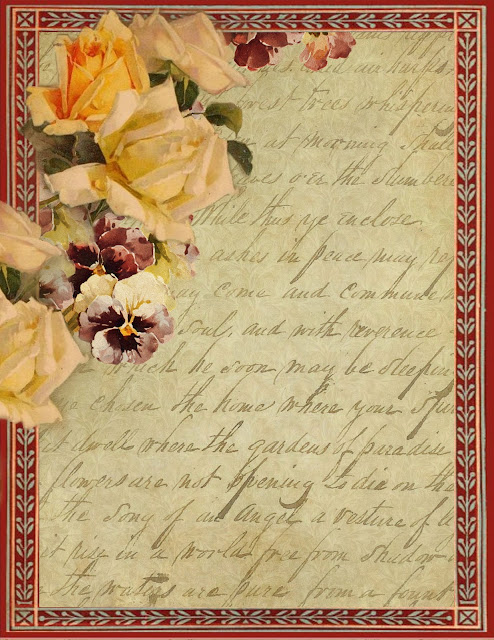 air harps,
forest trees whispering
at morning shall
over the slumbere
While thus ye enclose
ashes in peace may re
may come and commune
soul, and with reverence
he soon may be sleepin
chosen the home where your
dwell where the gardens of paradise
flowers are not opening to die on the
the song of an angel a vesture of
it rise in a world free from shadow
the waters are pure from a fount